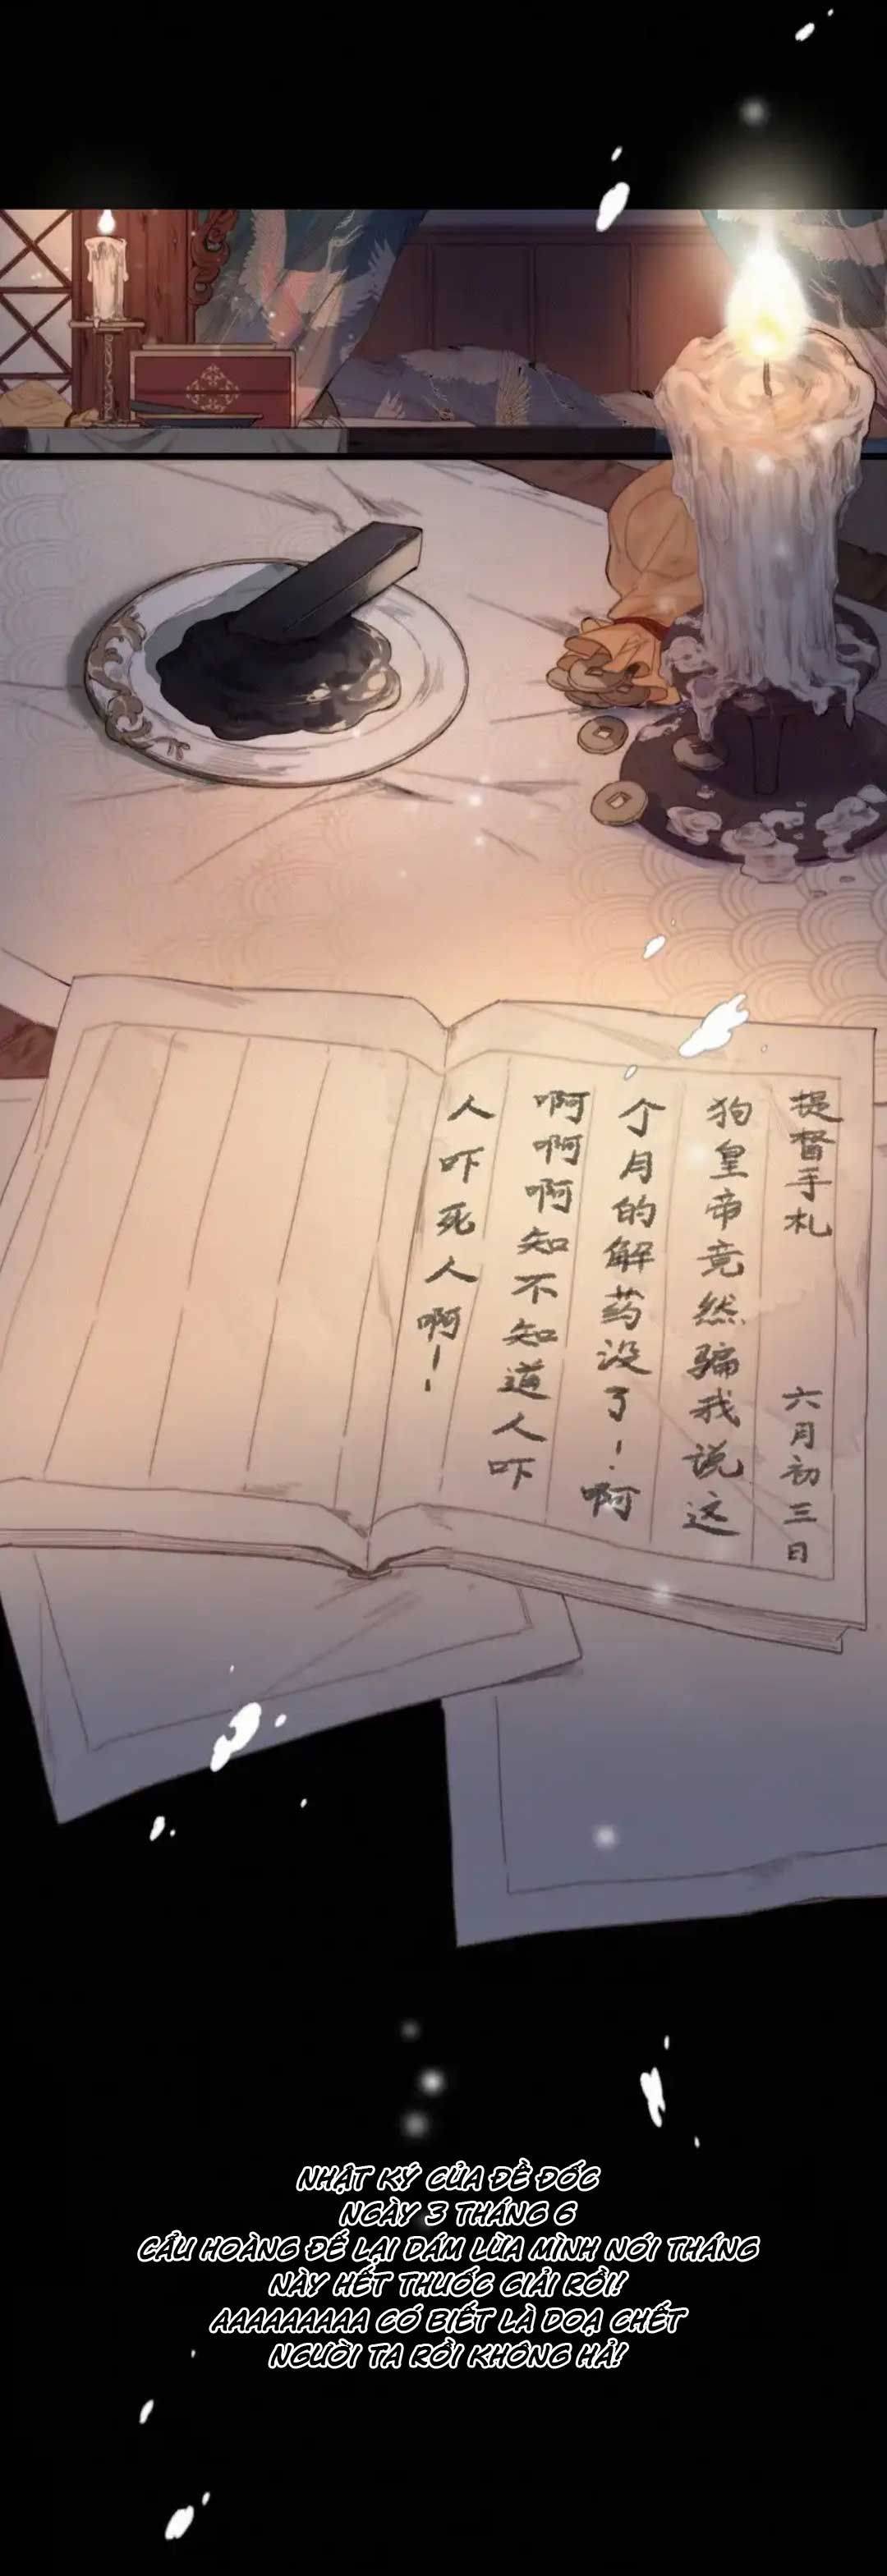 提督手札 六月初三日
狗皇帝竟然骗我说这
个月的解药没了！啊
啊啊啊知不知道人吓
人吓死人啊！
NHẬT KÝ CỦA ĐỀ ĐỐC
NGÀY 3 THÁNG 6
CẨU HOÀNG ĐẾ LẠI DÁM LỪA MÌNH NÓI THÁNG
NÀY HẾT THUỐC GIẢI RỒI!
AAAAAAAAA CÓ BIẾT LÀ DOẠ CHẾT
NGƯỜI TA RỒI KHÔNG HẢ!